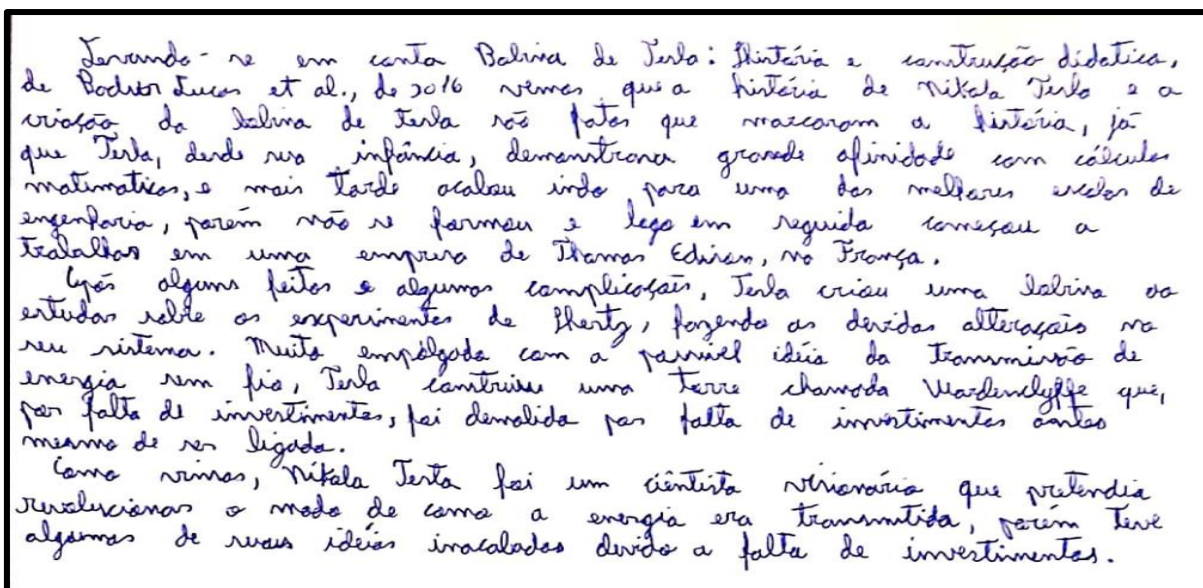 Levando-se em conta Bobina de Tesla: História e construção didática,
de Bodner Lucas et al., de 2016 vemos que a história de Nikola Tesla e a
criação da bobina de tesla são fatos que marcaram a história, já
que Tesla, desde sua infância, demonstrava grande afinidade com cálculos
matimaticos, e mais tarde acabou indo para uma das melhores escolas de
engenharia, porém não se formou e logo em seguida começou a
trabalhar em uma empresa de Thomas Edison, na França.
Após alguns feitos e algumas complicações, Tesla criou uma bobina ao
estudar sobre os experimentos de Hertz, fazendo as devidas alterações no
seu sistema. Muito empolgado com a possível idéia da transmissão de
energia sem fio, Tesla construiu uma torre chamada Wardenclyffe que,
por falta de investimentos, foi demolida por falta de investimentos antes
mesmo de ser ligada.
Como vimos, Nikola Testa foi um ciêntista visionário que pretendia
revolucionar o modo de como a energia era transmitida, porém teve
algumas de suas idéias inacabadas devido a falta de investimentos.